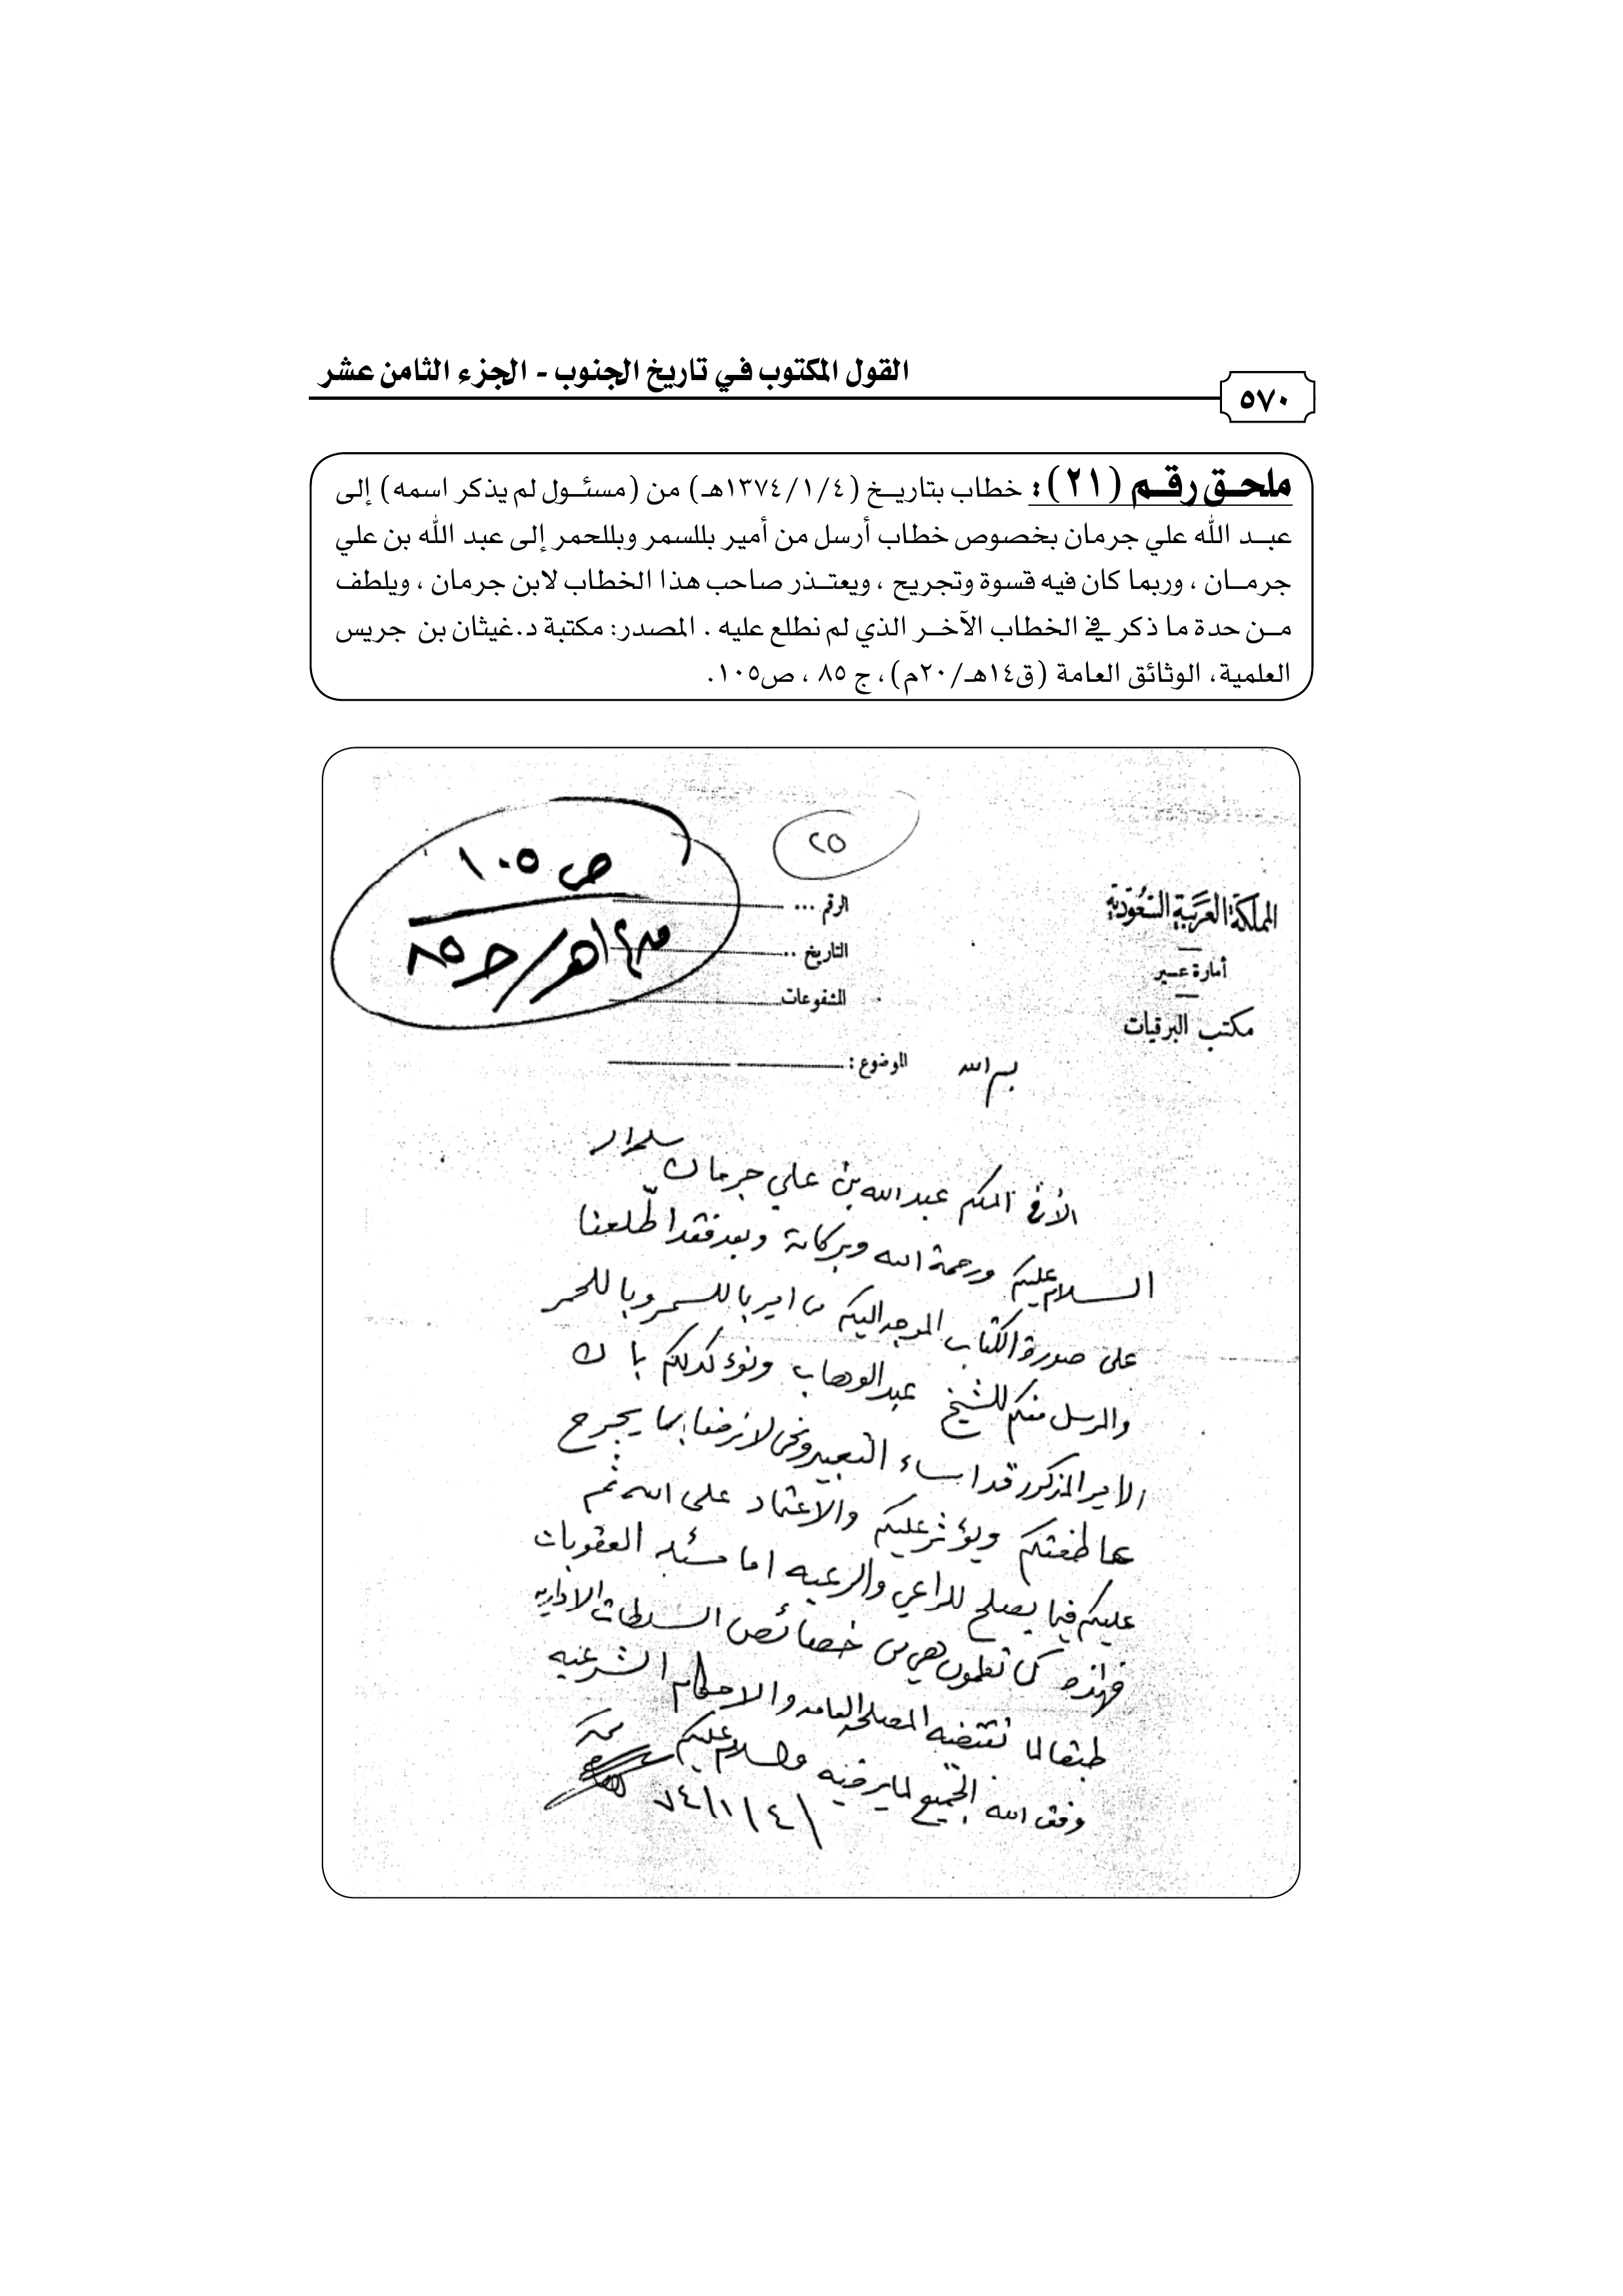 القول المكتوب في تاريخ الجنوب - الجزء الثامن عشر
٥٧٠
ملحـق رقـم (٢١): خطاب بتاريـخ (١٣٧٤/١/٤هـ) من (مسئـول لم يذكر اسمه) إلى
عبـد الله علي جرمان بخصوص خطاب أرسل من أمير بللسمر وبللحمر إلى عبد الله بن علي
جرمـان ، وربما كان فيه قسوة وتجريح ، ويعتـذر صاحب هذا الخطاب لابن جرمان ، ويلطف
مـن حدة ما ذكر في الخطاب الآخـر الذي لم نطلع عليه . المصدر: مكتبة د.غيثان بن جريس
العلمية، الوثائق العامة (ق١٤هـ/٢٠م)، ج ٨٥ ، ص١٠٥.
٢٥
ص ١٠٥
١٤هـ/ج ٨٥
المملكة العربية السعودية
أمارة عسير
مكتب البرقيات
الرقم ...
التاريخ ..
المشفوعات
الموضوع :
بسم الله
الأخ المكرم عبد الله بن علي جرمان
السلام عليكم ورحمة الله وبركاته وبعد فقد اطّلعنا
على صورة الكتاب الموجه اليكم من امير باللسمر وباللحمر
والمرسل منكم للشيخ عبد الوهاب ونؤكد لكم بان
الامير المذكور قد اساء التعبير ونحن لا نرضا بما يجرح
عاطفتكم ويؤثر عليكم والاعتماد على الله ثم
عليكم فيما يصلح للراعي والرعيه اما مسئله العقوبات
فهاذه كما تعلمون هي من خصائص السلطات الاداريه
طبقا لما تقتضيه المصلحه العامه والاحكام الشرعيه
وفق الله الجميع لما يرضيه والسلام عليكم
٧٤/١/٤